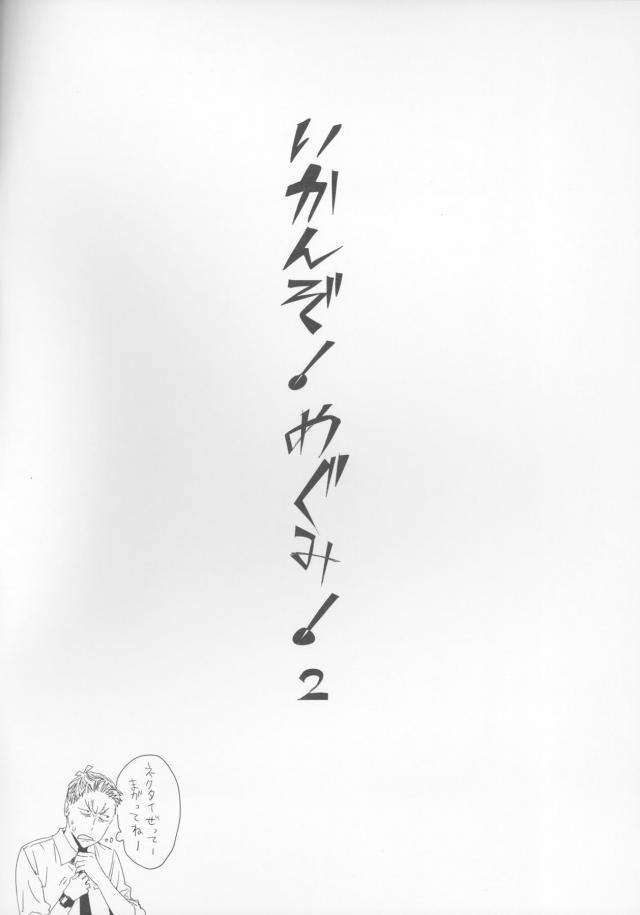 いかんぞ!めぐみ!2
ネクタイぜってー
まがってねー